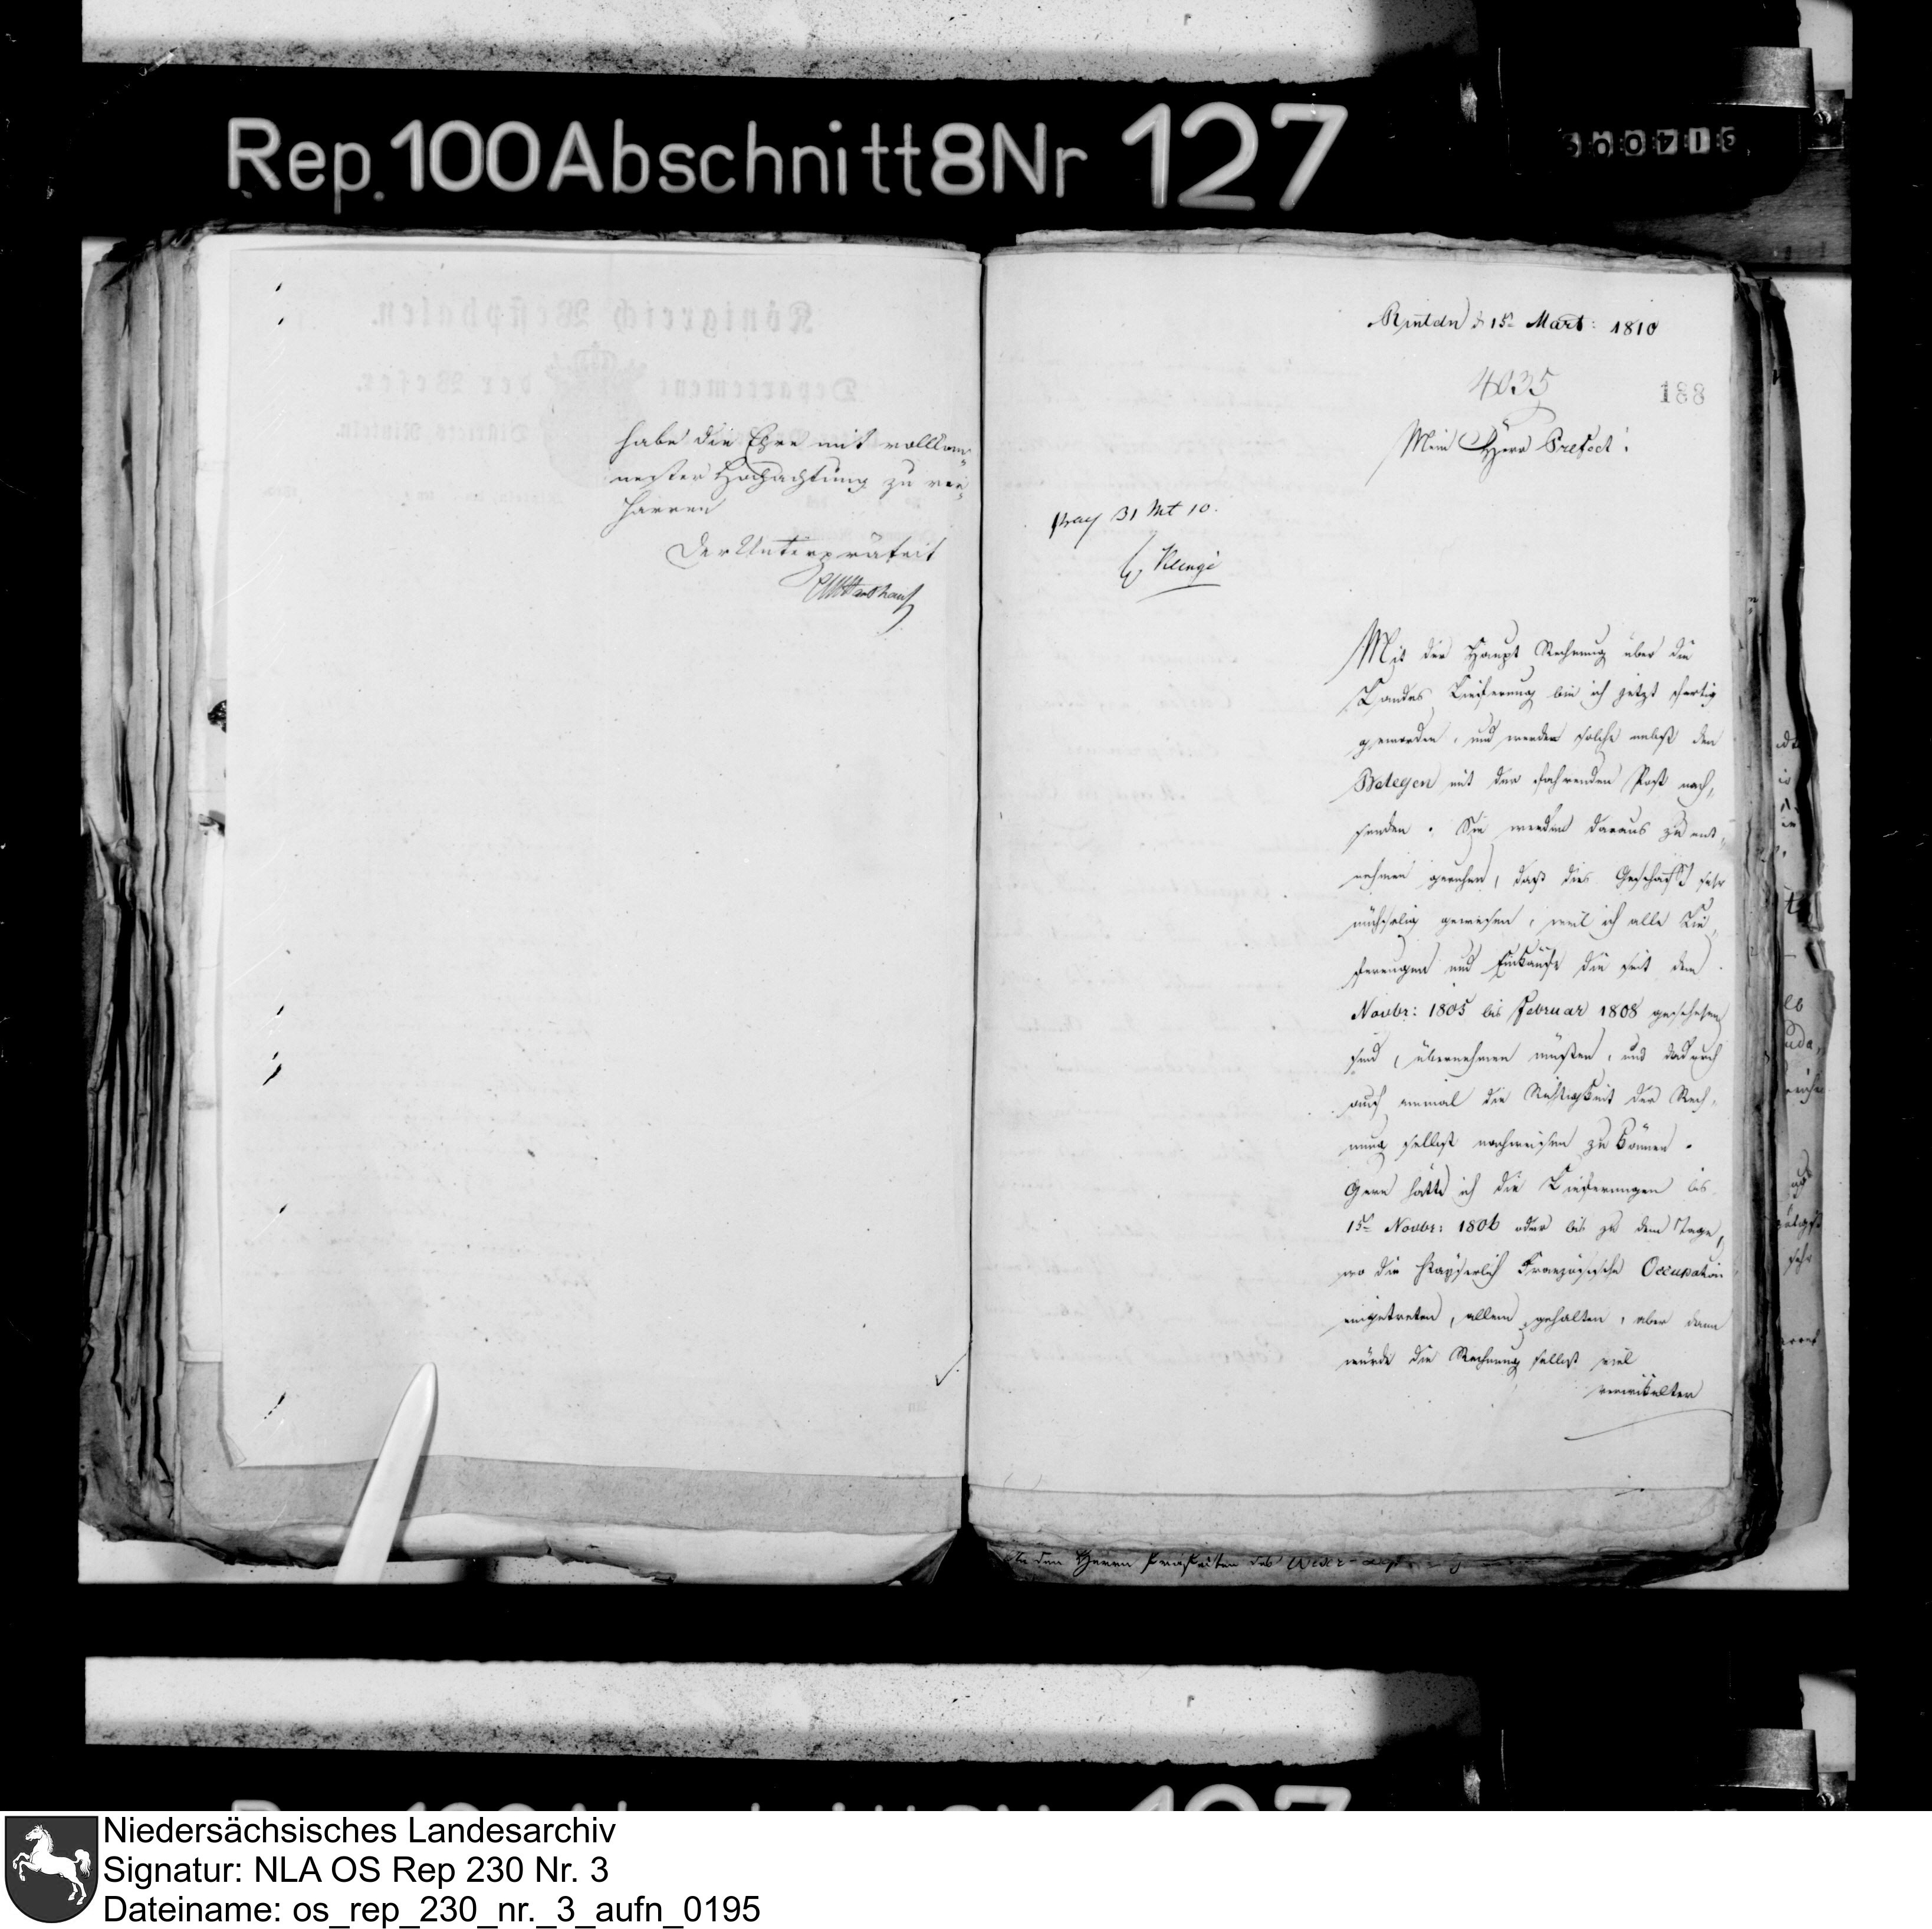 Rep. 100 Abschnitt 8 Nr 127
habe die Ehre mit vollkom=
menster Hochachtung zu ver=
harren
Der Unterpräfect
Rinteln d 15n Mart: 1810
4035
188
Mein Herr Prefect!
31 Mt 10.
Mit der Haupt Rechnung über die
Landes Lieferung bin ich jetzt fertig
geworden, und werde solche nebst den
Belegen mit der fahrenden Post nach,
senden. Sie werden daraus zu ent,
nehmen geruhen, daß dies Geschäfft sehr
mühselig gewesen, weil ich alle Lie,
ferungen und Einkäufe die seit dem
Novbr: 1805 bis Februar 1808 geschehen
sind, übernehmen müßen, um dadurch
auf einmal die Richtigkeit der Rech,
nung selbst nachweisen zu können.
Gern hätte ich die Lieferungen bis
15n Novbr: 1806 oder bis zu dem Tage,
wo die Kayserlich Französische Occupation
eingetreten, allein gehalten, aber dann
würde die Rechnung selbst viel
verwikelter
den Herrn Präfecten des Weser-
Niedersächsisches Landesarchiv
Signatur: NLA OS Rep 230 Nr. 3
Dateiname: os_rep_230_nr._3_aufn_0195